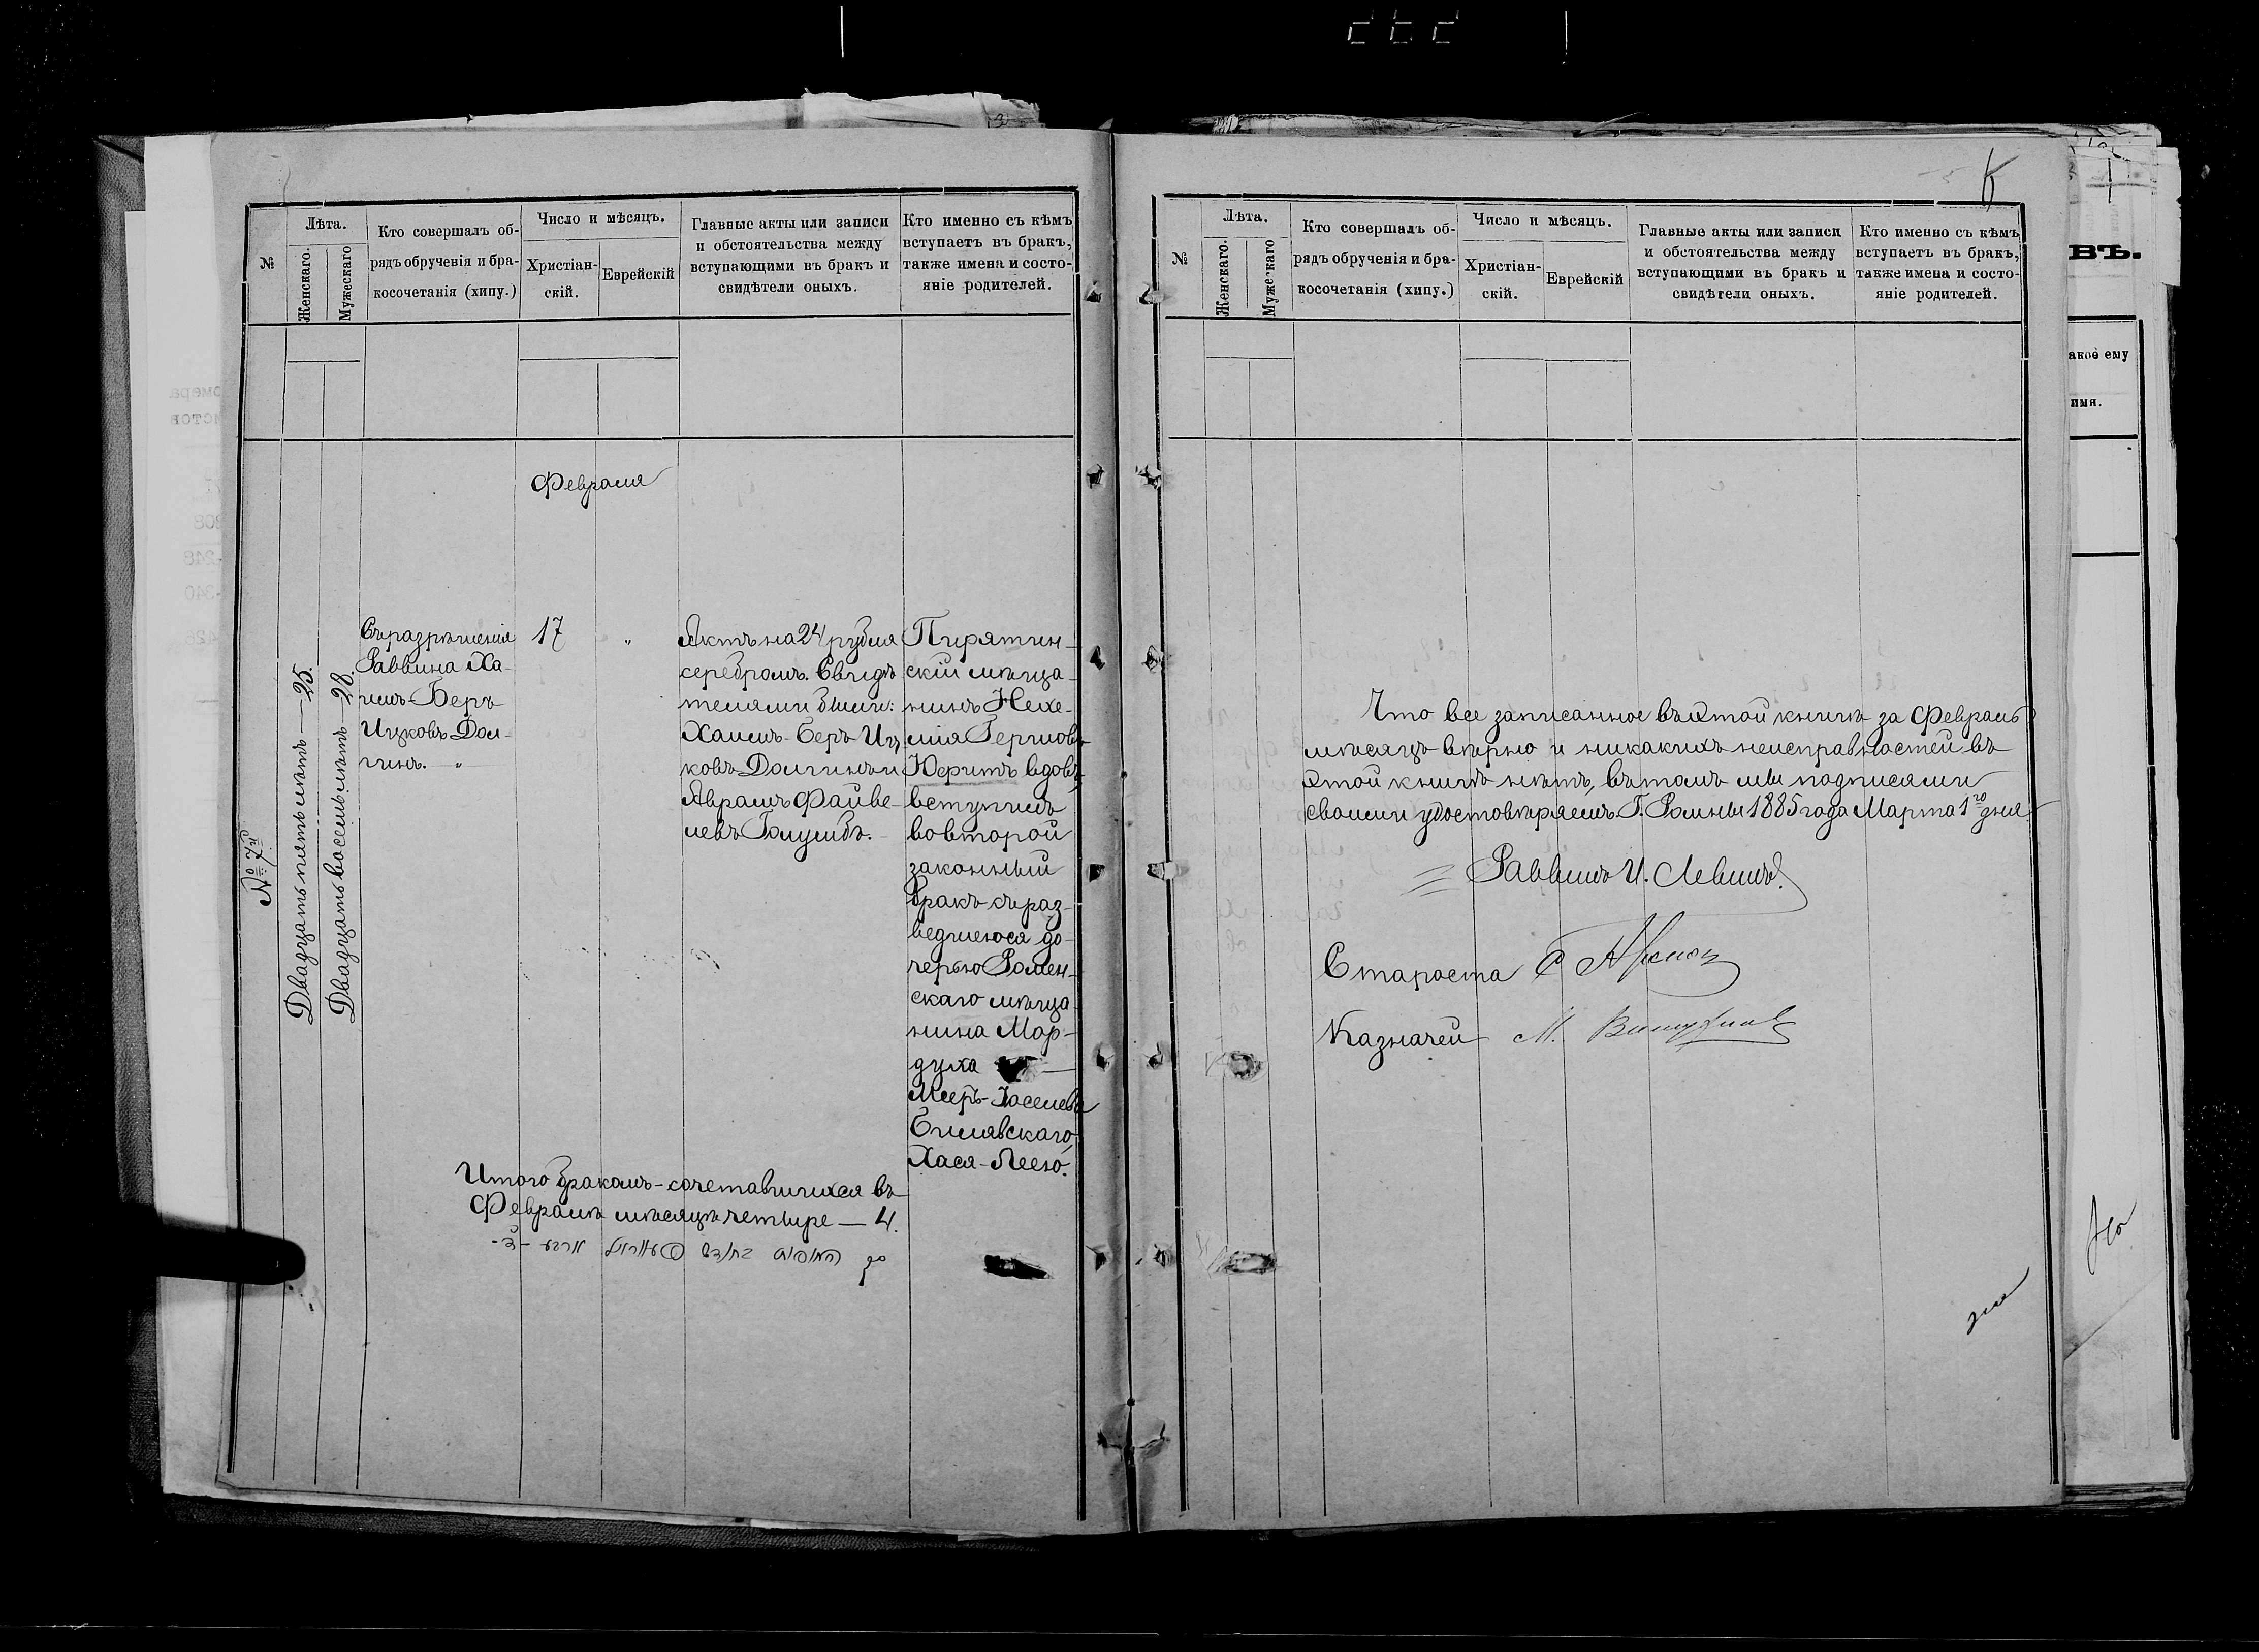 №
Лѣта.
Женскаго.
Мужескаго
Кто совершалъ об-
рядъ обрученія и бра-
косочетанія (хипу.)
Число и мѣсяцъ.
Христіан-
скій.
Еврейскій
Главные акты или записи
и обстоятельства между
вступающими въ бракъ и
свидѣтели оныхъ.
Кто именно съ кѣмъ
вступаетъ въ бракъ,
также имена и состо-
яніе родителей.
Февраля
№ 7й
Двадцать пять лѣтъ — 25.
Двадцать восемь лѣтъ — 28.
Съ разрѣшенія
Раввина Ха-
имъ-Беръ
Ицковъ Дол-
гинъ. "
17
"
Актъ на 24 рубля
серебромъ. Свидѣ
телями были:
Хаимъ-Беръ Иц
ковъ Долгинъ и
Аврамъ Файве-
левъ Голумбъ.
Пирятин-
скій мѣща-
нинъ Нехе-
мія Гершовъ
вдовъ,
вступилъ
во второй
законный
бракъ съ раз-
ведшеюся до-
черью Ромен-
скаго мѣща-
нина Мор-
духа
Меер-Іоселева
Билявскаго,
Хася-Леею.
Итого бракомъ-сочетавшихся въ
Февралѣ мѣсяцѣ четыре — 4.
№
Лѣта.
Женскаго.
Мужескаго
Кто совершалъ об-
рядъ обрученія и бра-
косочетанія (хипу.)
Число и мѣсяцъ.
Христіан-
скій.
Еврейскій
Главные акты или записи
и обстоятельства между
вступающими въ бракъ и
свидѣтели оныхъ.
Кто именно съ кѣмъ
вступаетъ въ бракъ,
также имена и состо-
яніе родителей.
Что все записанное въ этой книгѣ за Февраль
мѣсяцъ вѣрно и никакихъ неисправностей въ
этой книгѣ нѣтъ, въ томъ мы подписями
своими удостовѣряемъ. Г. Ромны 1885 года Марта 1го дня.
Раввинъ И. Левинъ.
Староста
Казначей М.
въ.
акое ему
имя.